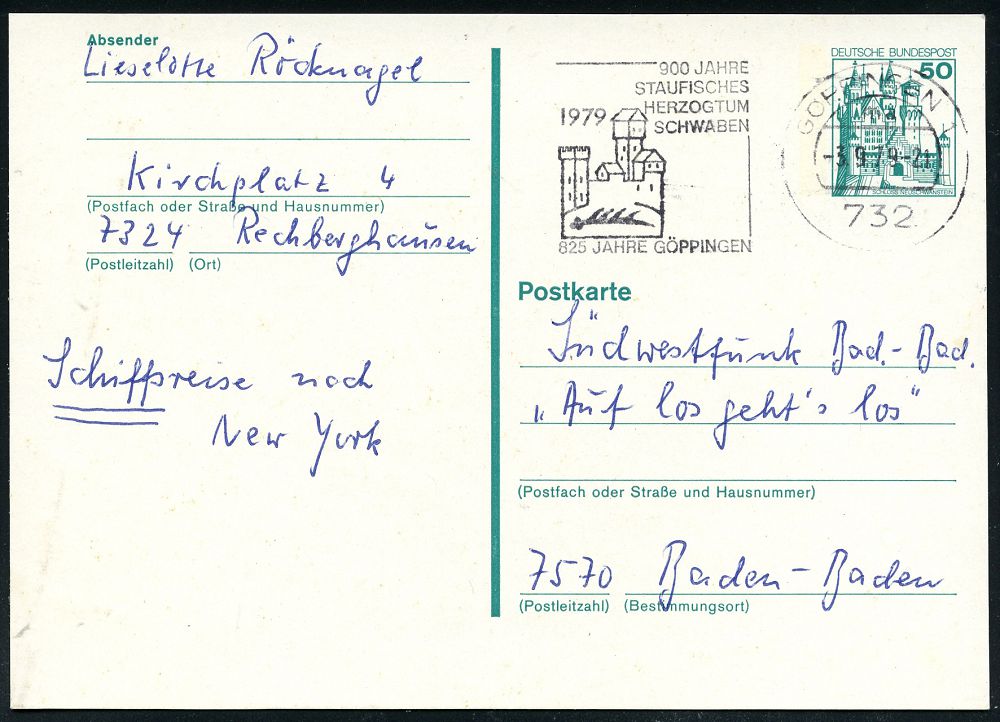 Absender
Lieselotte Röcknagel
Kirchplatz 4
(Postfach oder Straße und Hausnummer)
7324 Rechberghausen
(Postleitzahl) (Ort)
Schiffsreise nach
New York
900 JAHRE
STAUFISCHES
HERZOGTUM
SCHWABEN
1979
825 JAHRE GÖPPINGEN
DEUTSCHE BUNDESPOST
50
SCHLOSS NEUSCHWANSTEIN
GÖPPINGEN 1
-3.9.79-21
732
Postkarte
Südwestfunk Bad.-Bad.
„Auf los geht's los"
(Postfach oder Straße und Hausnummer)
7570 Baden-Baden
(Postleitzahl) (Bestimmungsort)